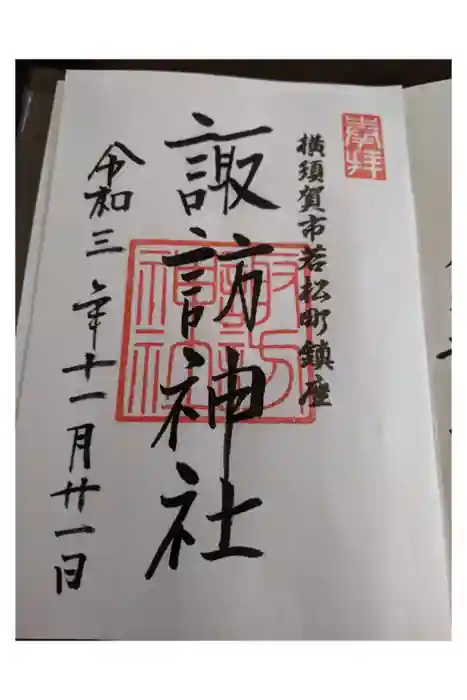 奉拝
横須賀市若松町鎮座
諏訪神社
諏訪神社
令和三年十一月廿一日